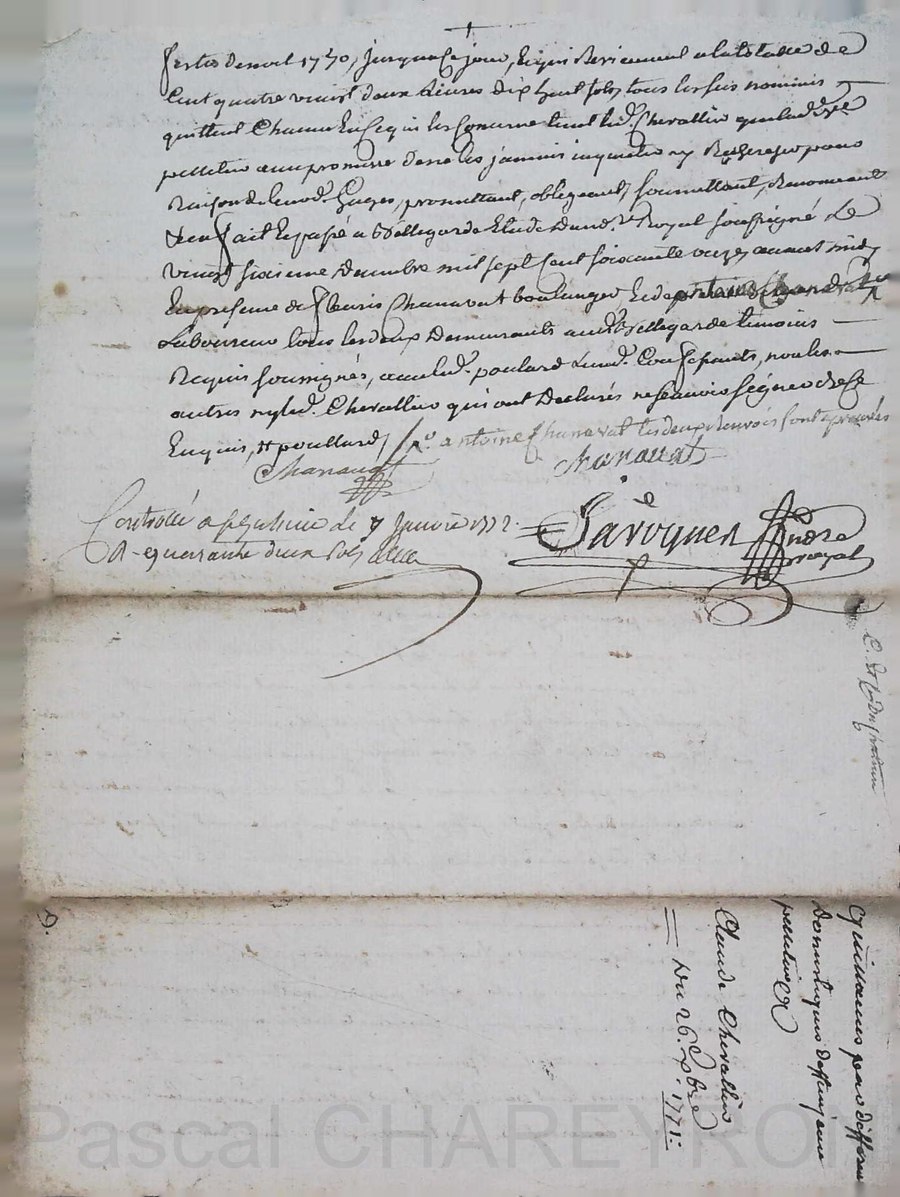 festes de noel 1770, jusqua ce jour, Et qui Reviennent a la totalle de
Cent quatre vingt deux Livres dix huit sols, tous les sus nommés
quittent Chacun En Ce qui les Concerne tant led. Chevallier que lad.
pelletier avec promesse de ne les jamais inquietter ny Rechercher pour
Raison de leursd. Gages, promettant, obligeant, soumettant, Renonceant
fait Et passé a Bellegarde Etude dud. Royal soussigné Le
vingt sixieme decembre mil sept cent soixante onze avant midy
En presence de fleuris Chanavat boulanger, Et de
Laboureur tous les deux Demeurants aud. Bellegarde temoins
Requis soussignés, avec led. poulard non les
autres ny led. Chevallier qui ont Declarés ne sçavoir signer de ce
Enquis, poullard, antoine Chanavat les deux Renvois sont aprouvés
Chanavat Chanavat
Controllé a le 7 Janvier 1772
R. quarante deux sols
Royal
Quittances par differens
Domestiques deffunt jeanne
pelletier &
Claude Chevallier
Du 26. Xbre 1771:
9.
Pascal CHAREYRON